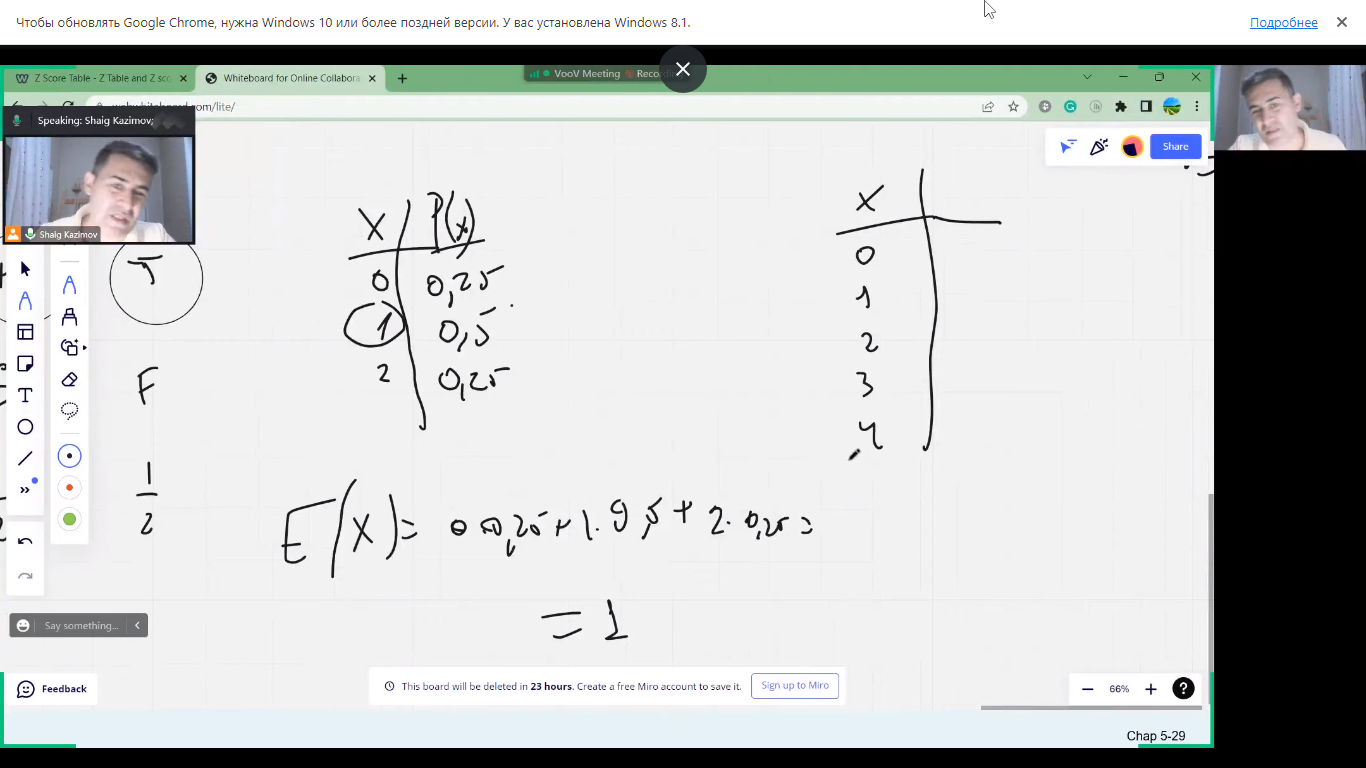 Чтобы обновлять Google Chrome, нужна Windows 10 или более поздней версии. У вас установлена Windows 8.1.
Подробнее
Z Score Table - Z Table and Z sco
Whiteboard for Online Collabora
VooV Meeting
/lite/
Speaking: Shaig Kazimov;
Shaig Kazimov
Share
X P(x)
0 0,25
1 0,5
2 0,25
X
0
1
2
3
4
T
F
1
2
E(X) = 0·0,25 + 1·0,5 + 2·0,25 =
= 1
Say something...
Feedback
This board will be deleted in 23 hours. Create a free Miro account to save it.
Sign up to Miro
66%
Chap 5-29